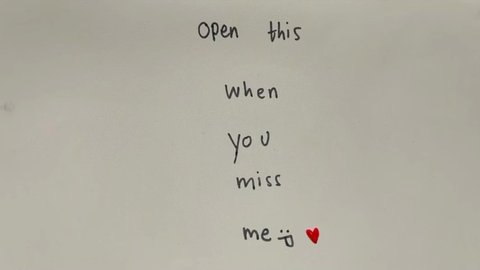 open this
when
you
miss
me :P ♥